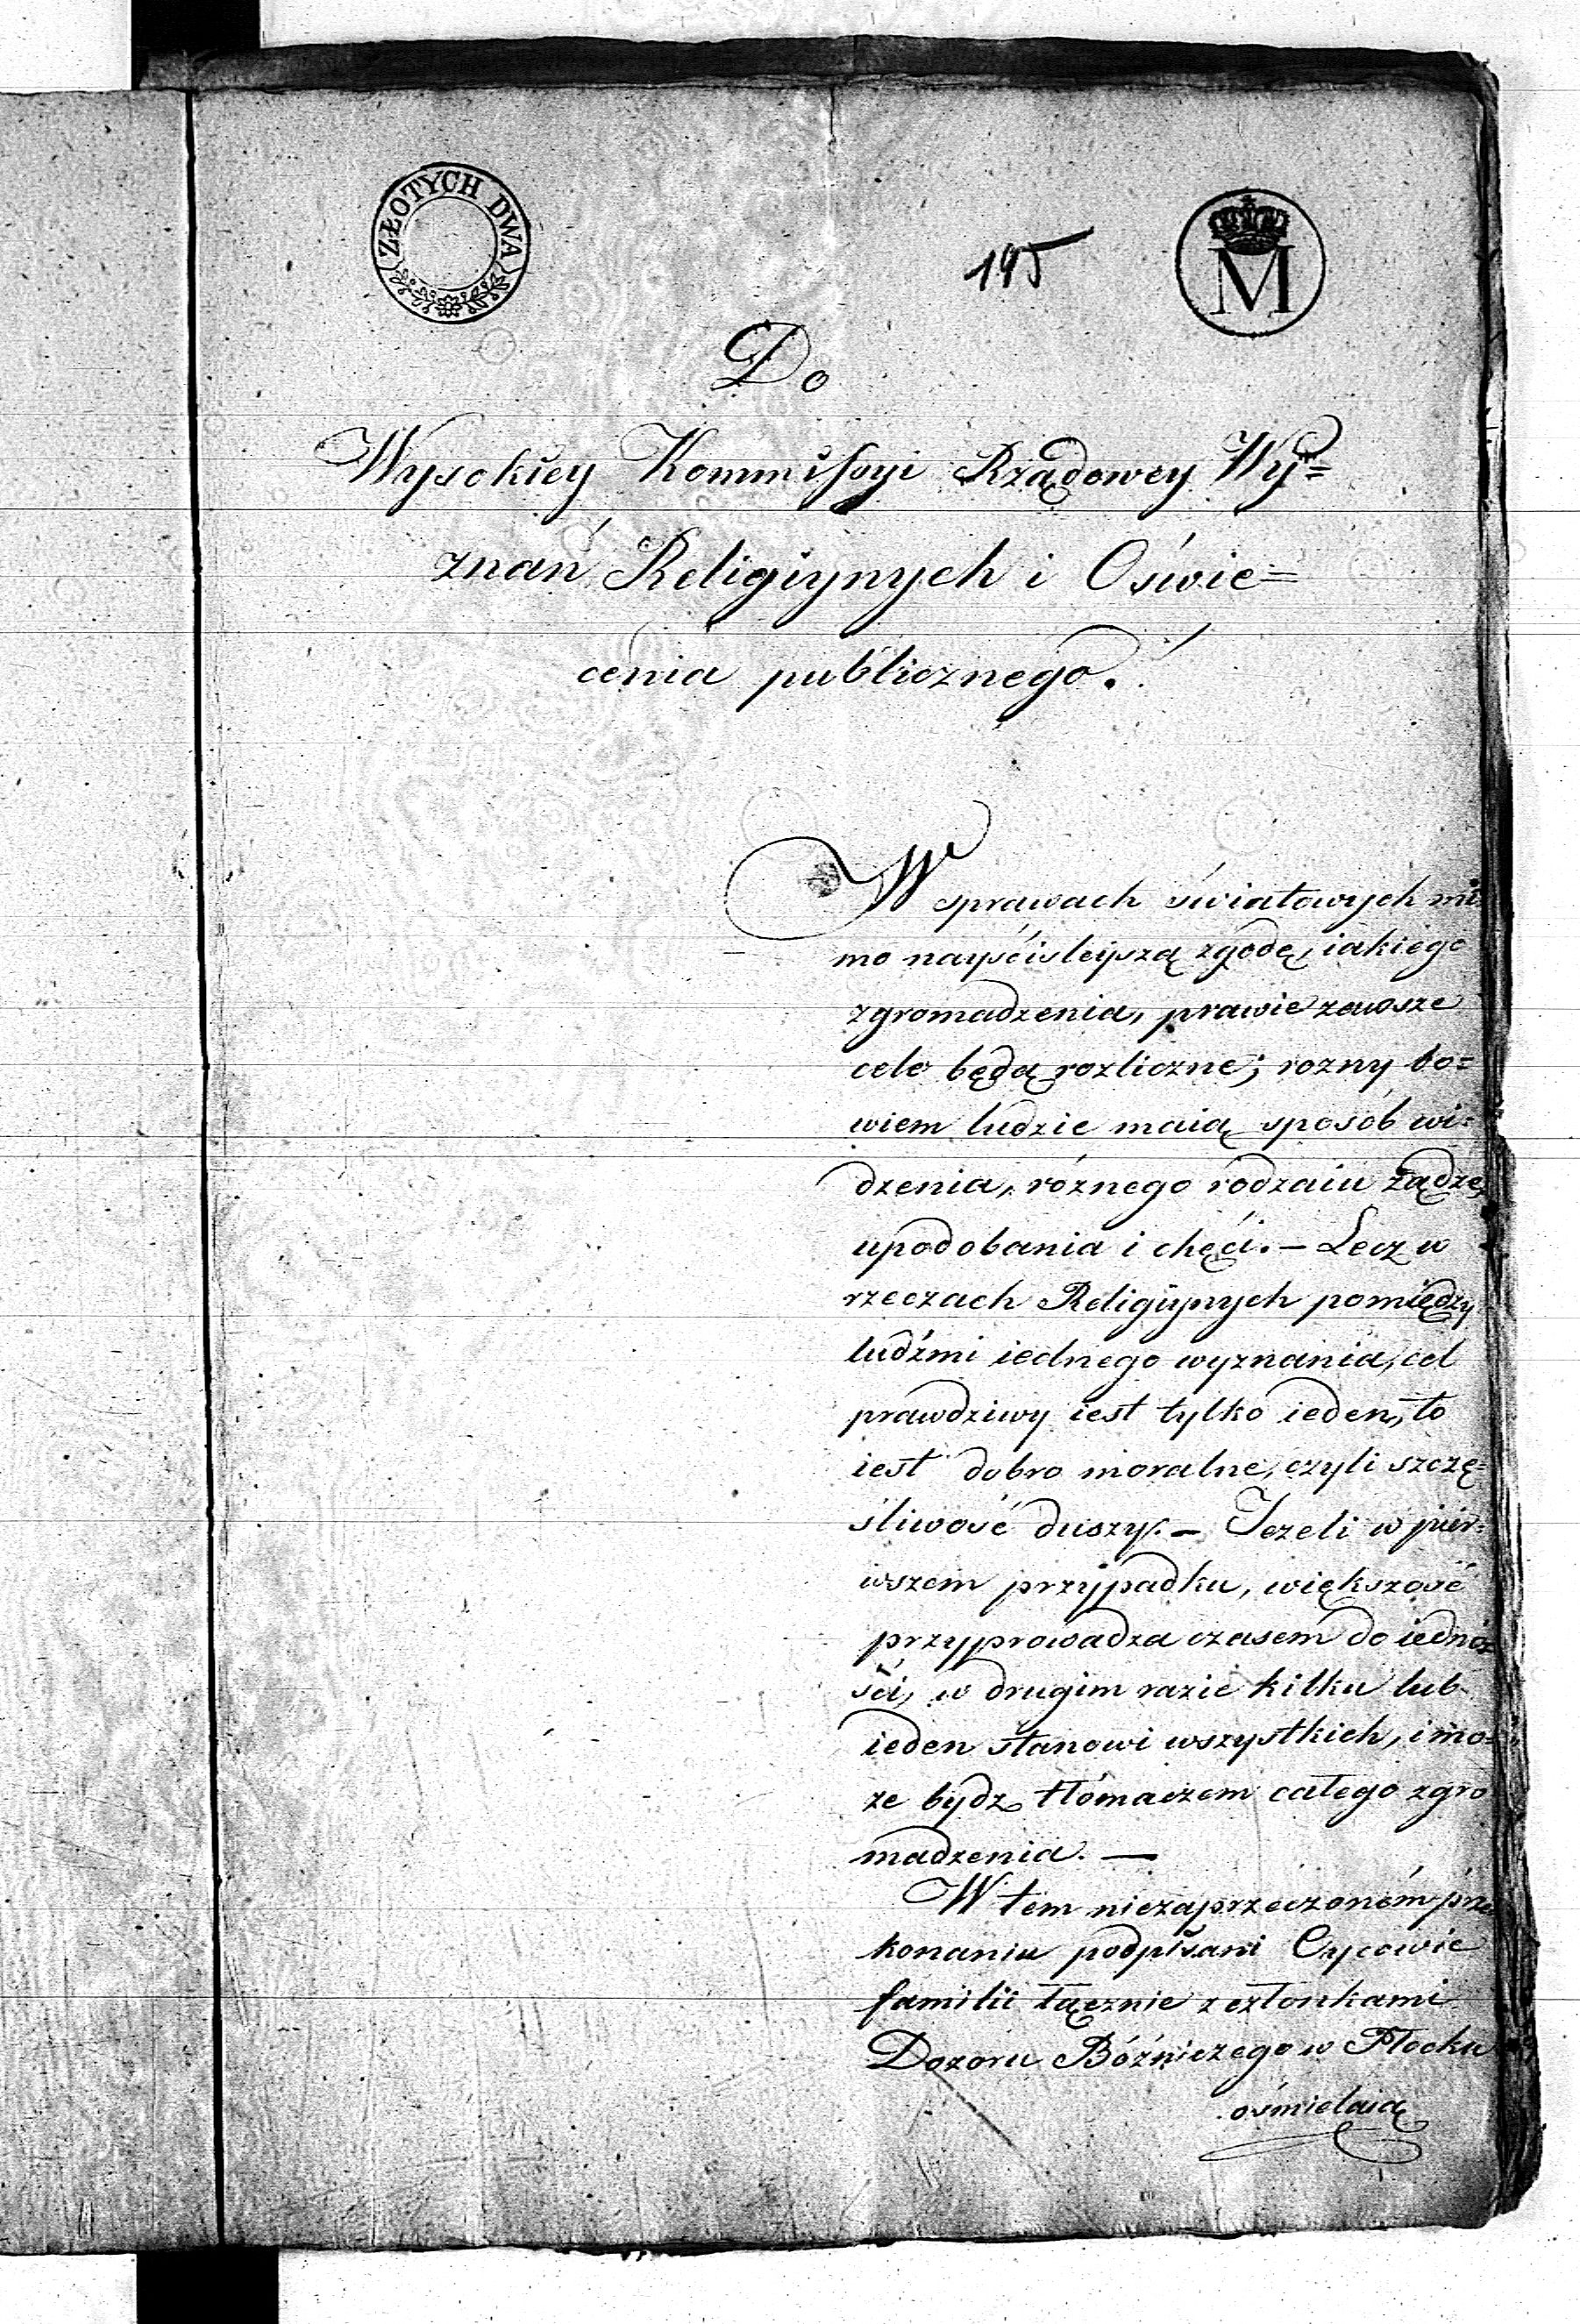 ZŁOTYCH DWA
195
M
Do
Wysokiey Kommissyi Rządowey Wy=
znań Religiynych i Oświe=
cenia publicznego.
W sprawach światowych mi
mo nayściśleyszą zgodę, iakiego
zgromadzenia, prawie zawsze
cele będą rozliczne; rozny bo=
wiem ludzie maią sposób wi=
dzenia, róznego rodzaiu żądze,
upodobania i chęci. – Lecz w
rzeczach Religiynych pomiędzy
ludźmi iednego wyznania, cel
prawdziwy iest tylko ieden, to
iest dobro moralne, czyli szczę=
śliwość duszy. – Jezeli w pier=
wszem przypadku, większość
przyprowadza czasem do iedno=
ści, w drugim razie kilku lub
ieden stanowi wszystkich, i mo=
ze bydz tłómaczem całego zgro
madzenia. —
W tem niezaprzeczoném prze
konaniu podpisani Oycowie
familii łącznie z członkami
Dozoru Bóźniczego w Płocku
ośmielaią